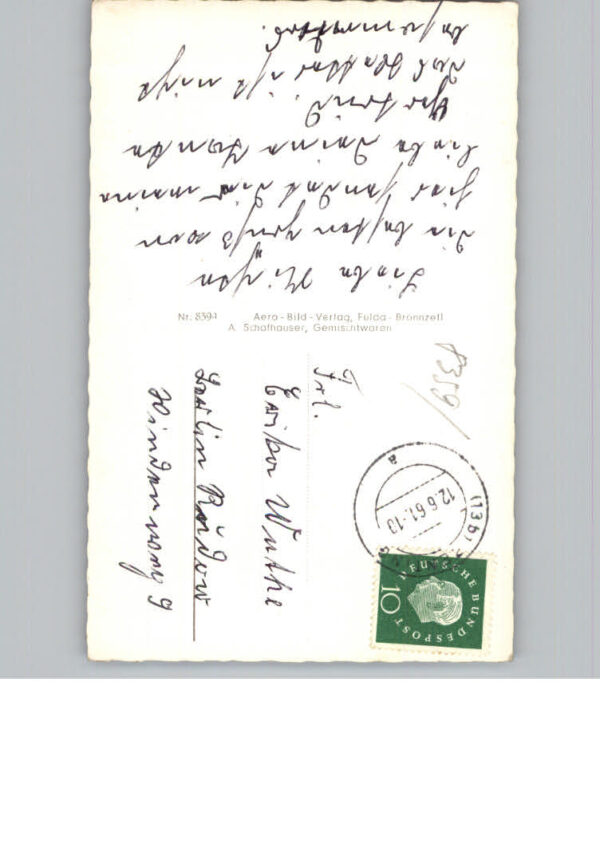 Liebe
die besten Grüße von
hier sendet dir meine
liebe deine Tante
das Wetter ist nicht
Nr. 8394 Aero-Bild-Verlag, Fulda-Bronnzell
A. Schafhauser, Gemischtwaren
Frl.
Erika Wuthe
Berlin Rudow
Windenweg 9
(13b)
12.6.61.-10
a
DEUTSCHE BUNDESPOST
10